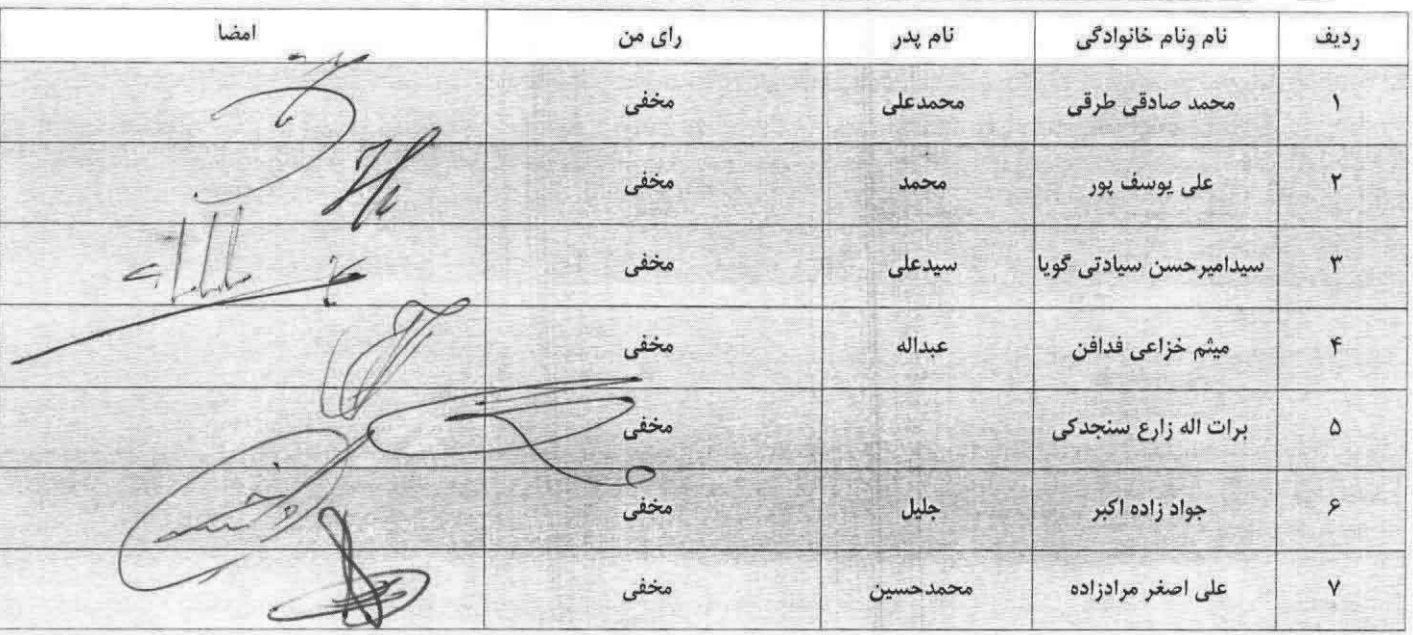 ردیف نام ونام خانوادگی نام پدر رای من امضا
۱ محمد صادقی طرقی محمدعلی مخفی
۲ علی یوسف پور محمد مخفی
۳ سیدامیرحسن سیادتی گویا سیدعلی مخفی
۴ میثم خزاعی فدافن عبداله مخفی
۵ برات اله زارع سنجدکی مخفی
۶ جواد زاده اکبر جلیل مخفی
۷ علی اصغر مرادزاده محمدحسین مخفی